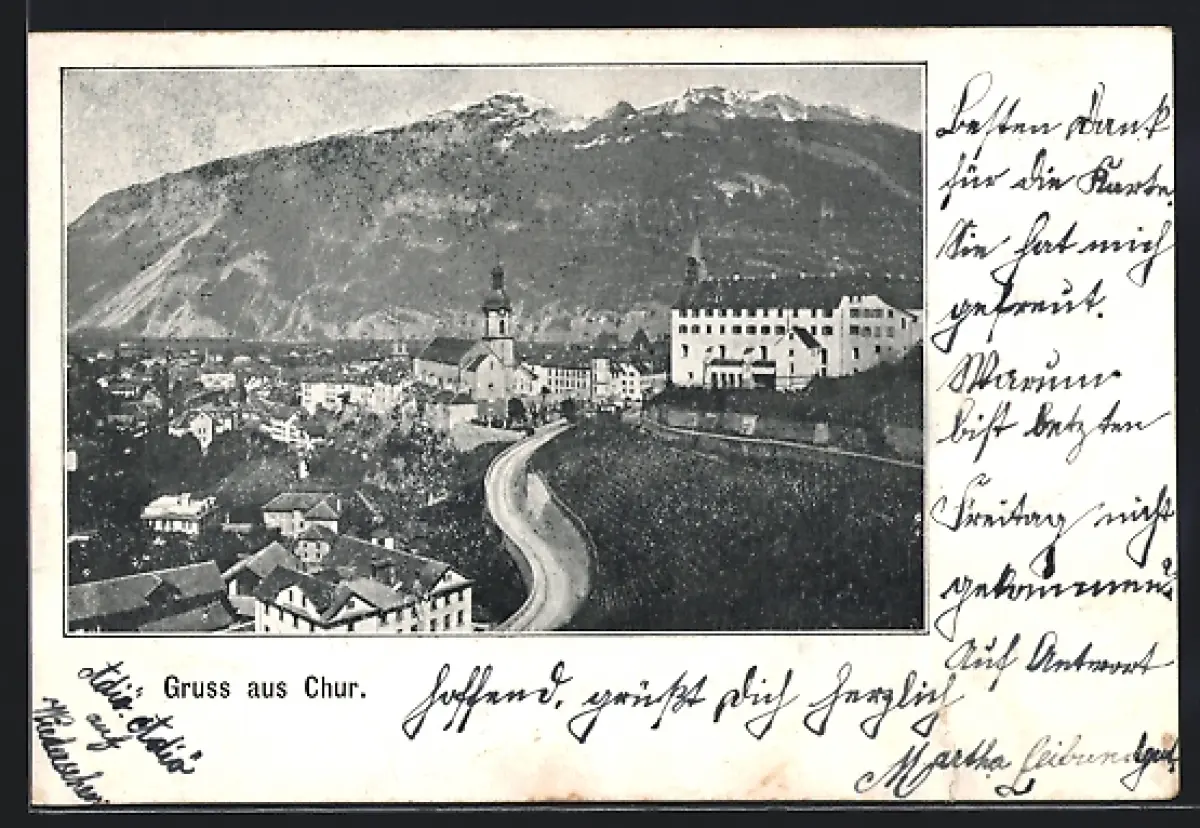 Besten Dank
für die Karte.
Sie hat mich
gefreut.
Warum
bist letzten
Freitag nicht
gekommen?
Auf Antwort
hoffend, grüßt Dich herzlich
Martha Leibundgut.
Gruss aus Chur.
Adio. Adio"
auf
Wiedersehen